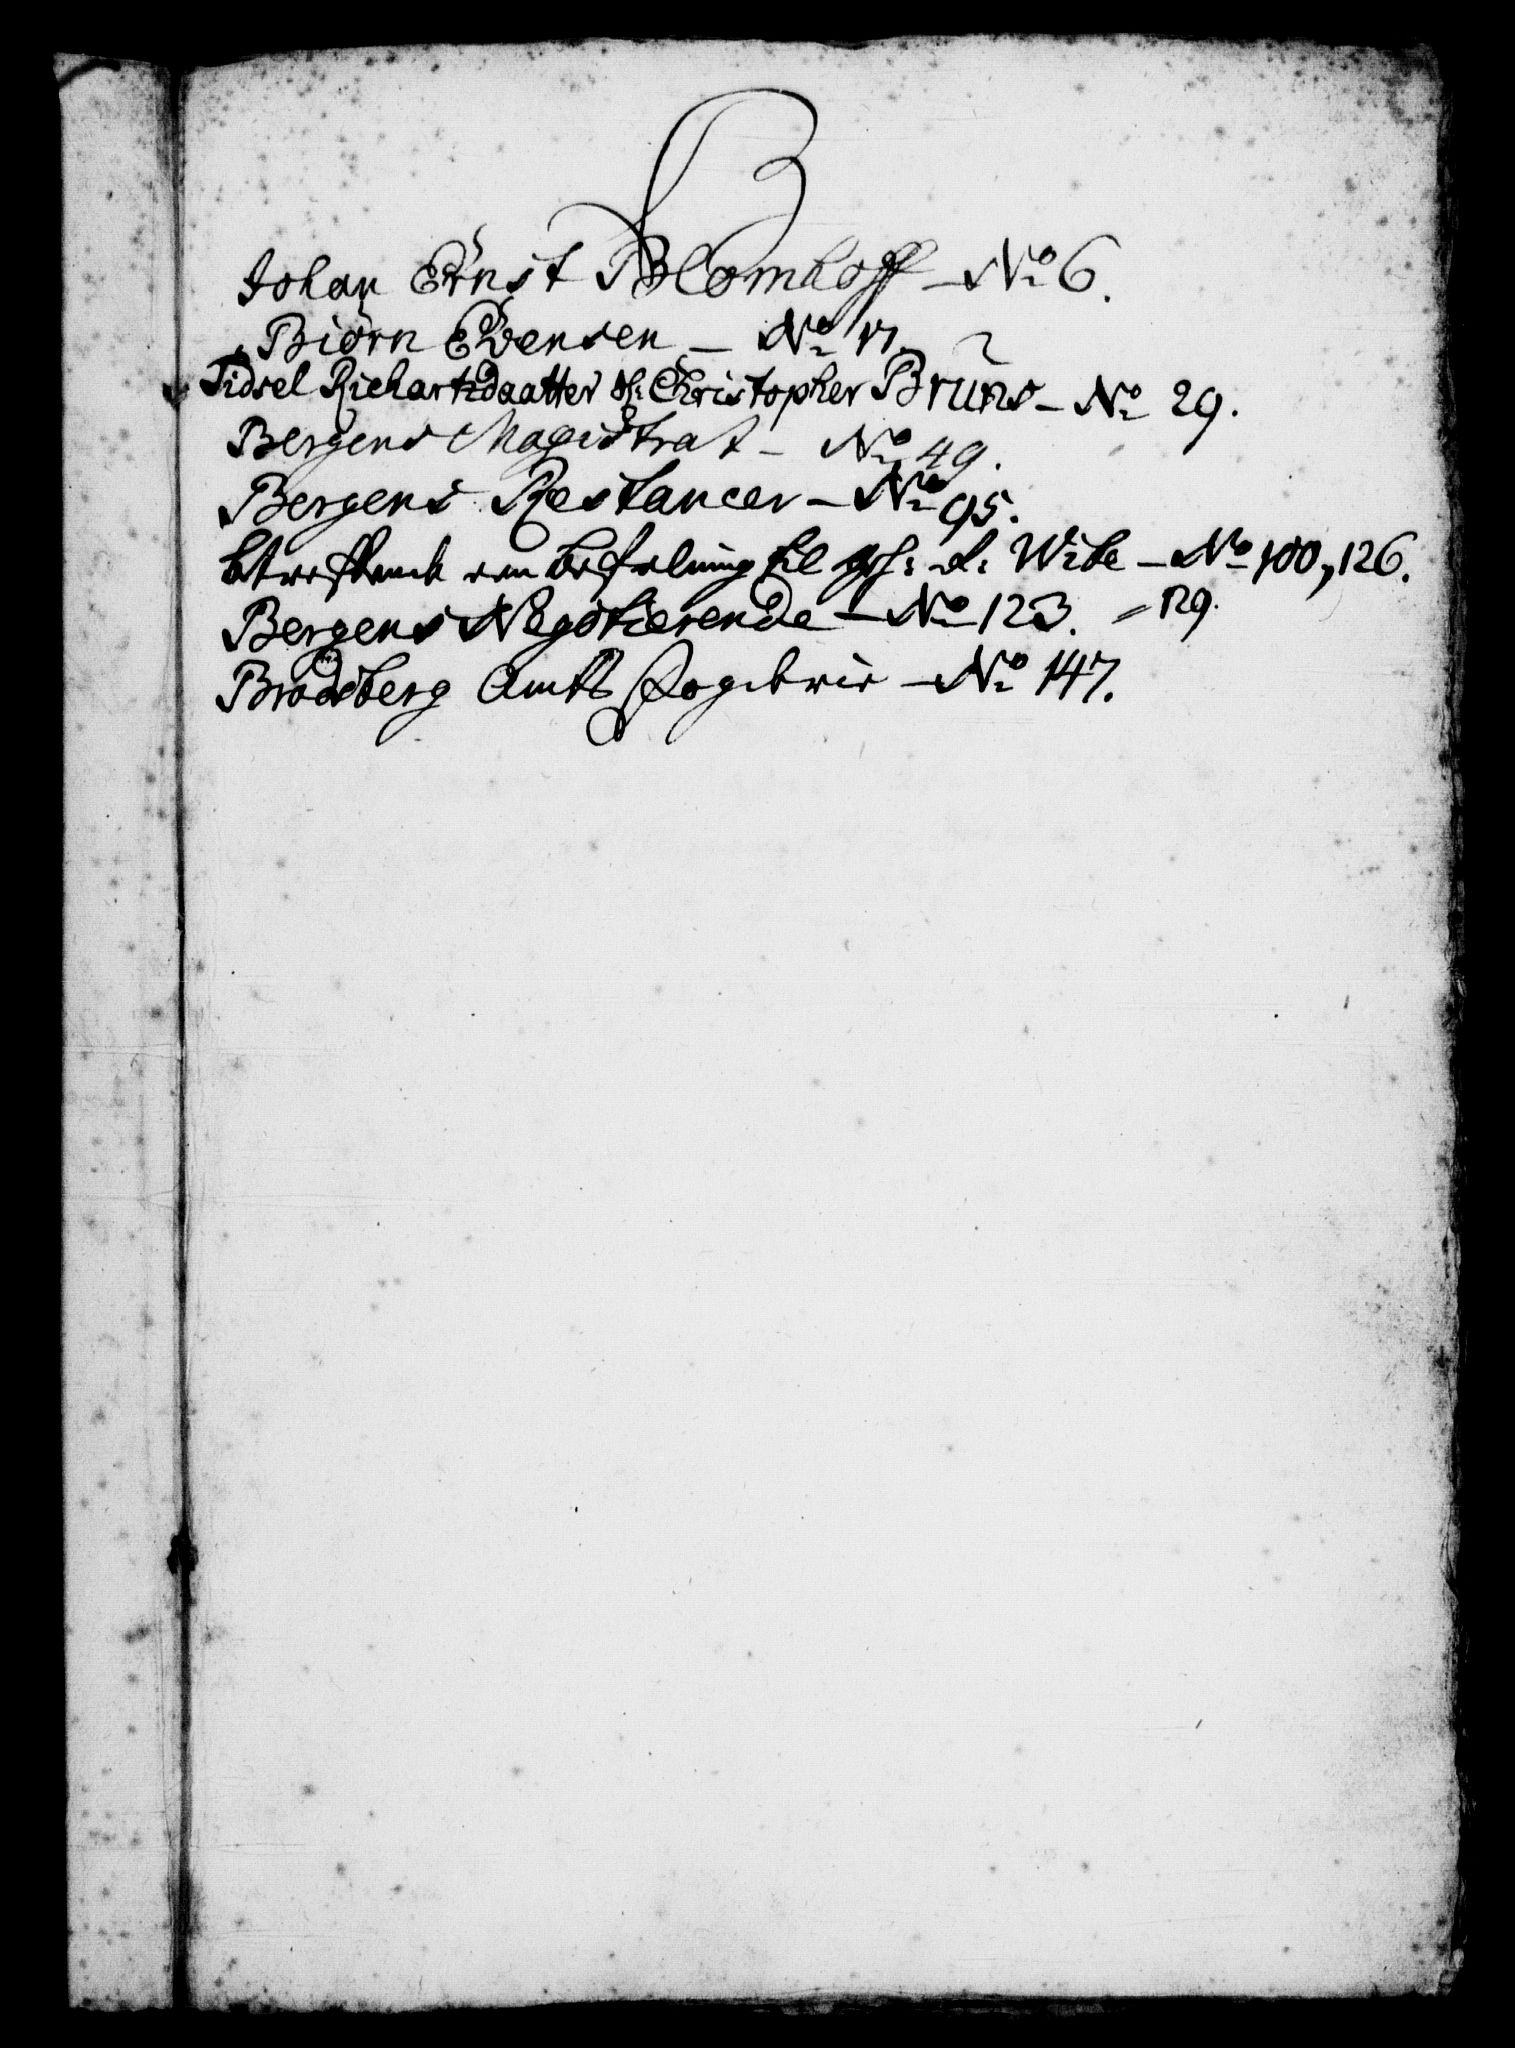 B
Johan Ernst Blomhoff – No 6.
Biörn Evensen – No 17.
Tidsel Richartzdaatter Christopher Bruns – No 29.
Bergens Magistrat – No 49.
Bergens Restancer – No 95.
betreffend een befalning til Wibe – No 100, 126.
Bergens Negotierende – No 123. = 129.
Bradsberg Amts Fogderie – No 147.